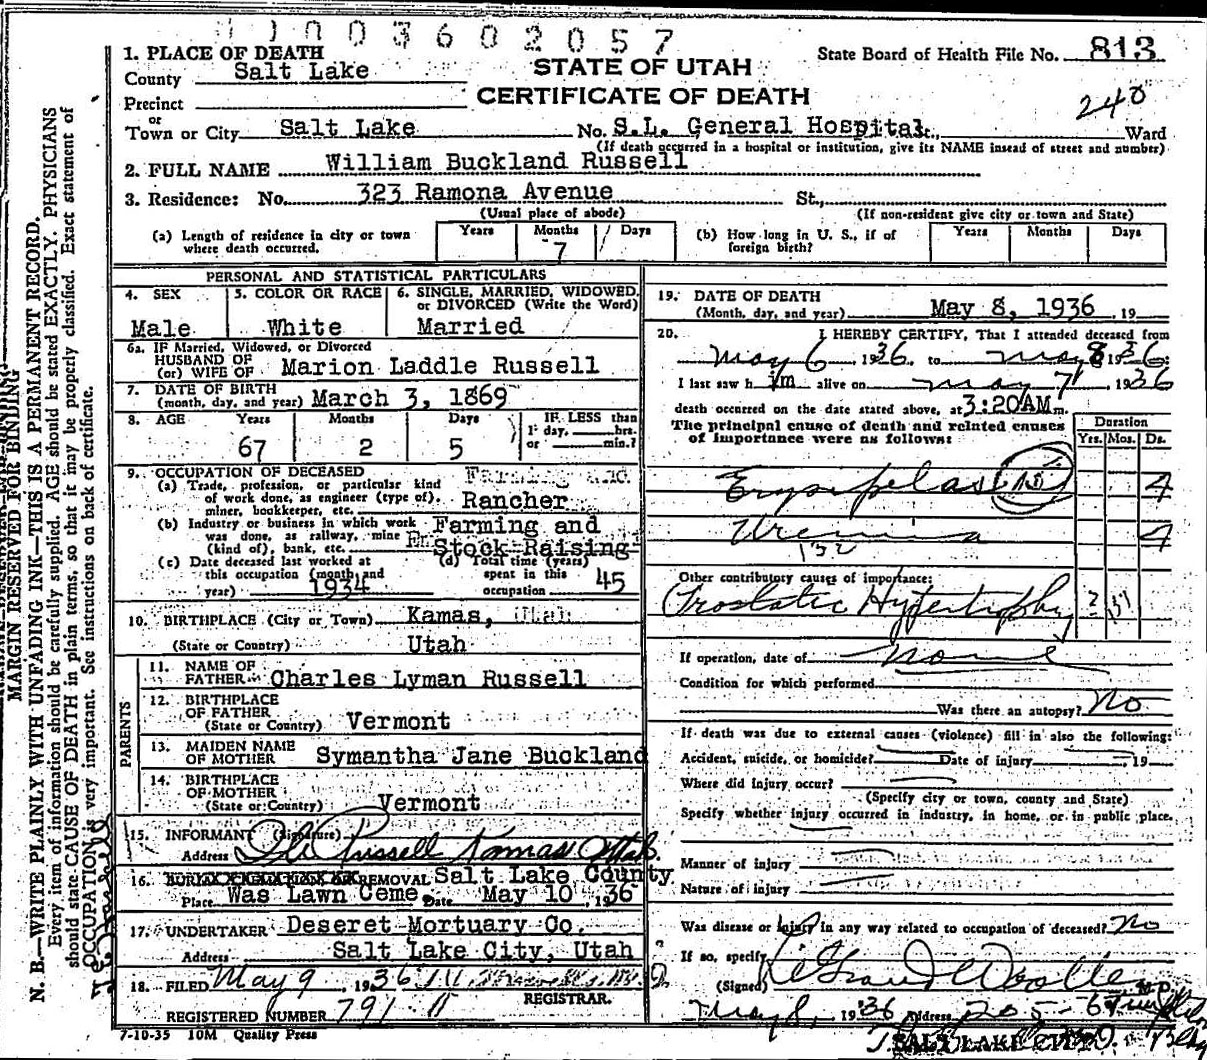 11003602057
State Board of Health File No. 813
STATE OF UTAH
CERTIFICATE OF DEATH
240
1. PLACE OF DEATH
County Salt Lake
Precinct
or
Town or City Salt Lake No. S.L. General Hospital St., Ward
(If death occurred in a hospital or institution, give its NAME insead of street and number)
2. FULL NAME William Buckland Russell
3. Residence: No. 323 Ramona Avenue St.,
(Usual place of abode) (If non-resident give city or town and State)
(a) Length of residence in city or town where death occurred. Years Months 7 Days
(b) How long in U. S., if of foreign birth? Years Months Days
PERSONAL AND STATISTICAL PARTICULARS
4. SEX Male
5. COLOR OR RACE White
6. SINGLE, MARRIED, WIDOWED, or DIVORCED (Write the Word) Married
6a. IF Married, Widowed, or Divorced
HUSBAND OF
(or) WIFE OF Marion Laddle Russell
7. DATE OF BIRTH
(month, day, and year) March 3, 1869
8. AGE Years 67 Months 2 Days 5 IF LESS than 1 day, hrs. or min.?
9. OCCUPATION OF DECEASED
(a) Trade, profession, or particular kind of work done, as engineer (type of), miner, bookkeeper, etc. Rancher
(b) Industry or business in which work was done, as railway, mine (kind of), bank, etc. Farming and Stock Raising
(c) Date deceased last worked at this occupation (month and year) 1934
(d) Total time (years) spent in this occupation 45
10. BIRTHPLACE (City or Town) Kamas, Utah
(State or Country) Utah
PARENTS
11. NAME OF FATHER Charles Lyman Russell
12. BIRTHPLACE OF FATHER
(State or Country) Vermont
13. MAIDEN NAME OF MOTHER Symantha Jane Buckland
14. BIRTHPLACE OF MOTHER
(State or Country) Vermont
15. INFORMANT (Signature)
Address Russell Kamas Utah.
16. REMOVAL Salt Lake County
Place Was Lawn Ceme Date May 10, 1936
17. UNDERTAKER Deseret Mortuary Co.
Address Salt Lake City, Utah
18. FILED May 9 1936
REGISTRAR.
REGISTERED NUMBER 791
7-10-35 10M Quality Press
19. DATE OF DEATH
(Month, day, and year) May 8, 1936, 19
20. I HEREBY CERTIFY, That I attended deceased from
May 6, 1936, to May 8 1936;
I last saw him alive on May 7, 1936
death occurred on the date stated above, at 3:20AM m.
The principal cause of death and related causes of importance were as follows:
Duration
Yrs. Mos. Ds.
Erysipelas 4
Uremia 4
132
Other contributory causes of importance:
Prostatic Hypertrophy 2 137
If operation, date of none
Condition for which performed
Was there an autopsy? No
If death was due to external causes (violence) fill in also the following:
Accident, suicide, or homicide? Date of injury 19
Where did injury occur?
(Specify city or town, county and State)
Specify whether injury occurred in industry, in home, or in public place.
Manner of injury
Nature of injury
Was disease or injury in any way related to occupation of deceased? No
If so, specify
(Signed) M.D.
May 8, 1936 Address
SALT LAKE CITY
MARGIN RESERVED FOR BINDING
N. B.—WRITE PLAINLY WITH UNFADING INK—THIS IS A PERMANENT RECORD.
Every item of information should be carefully supplied. AGE should be stated EXACTLY. PHYSICIANS
should state CAUSE OF DEATH in plain terms, so that it may be properly classified. Exact statement of
OCCUPATION is very important. See instructions on back of certificate.